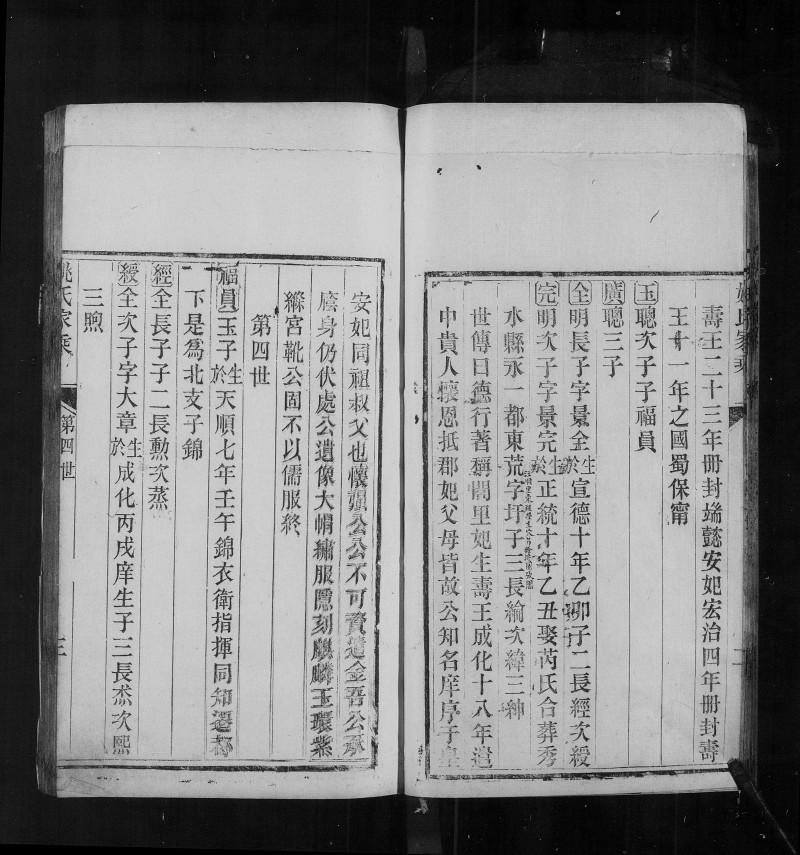 壽王二十三年冊封端懿安妃宏治四年冊封壽
王十一年之國蜀保甯
玉聰次子子福員
廣聰三子
全明長子字景全生於宣德十年乙卯子二長經次綬
完明次子字景完生於正統十年乙丑娶芮氏合葬秀
水縣永一都東荒字圩子三長綸次緯三紳
世傳曰德行著稱閭里妃生壽王成化十八年遣
中貴人懷恩抵郡妃父母皆故公知名庠序子皇
安妃同祖叔父也懷強公公不可賫遣金吾公承
廕身仍伏處公遺像大帽繡服隱刻麒麟玉環紫
縧宮靴公固不以儒服終
第四世
福員玉子生於天順七年壬午錦衣衛指揮同知遷都
下是為北支子錦
經全長子子二長勲次蒸
綬全次子字大章生於成化丙戌庠生子三長杰次熙
三煦
姚氏家乘
第四世
三